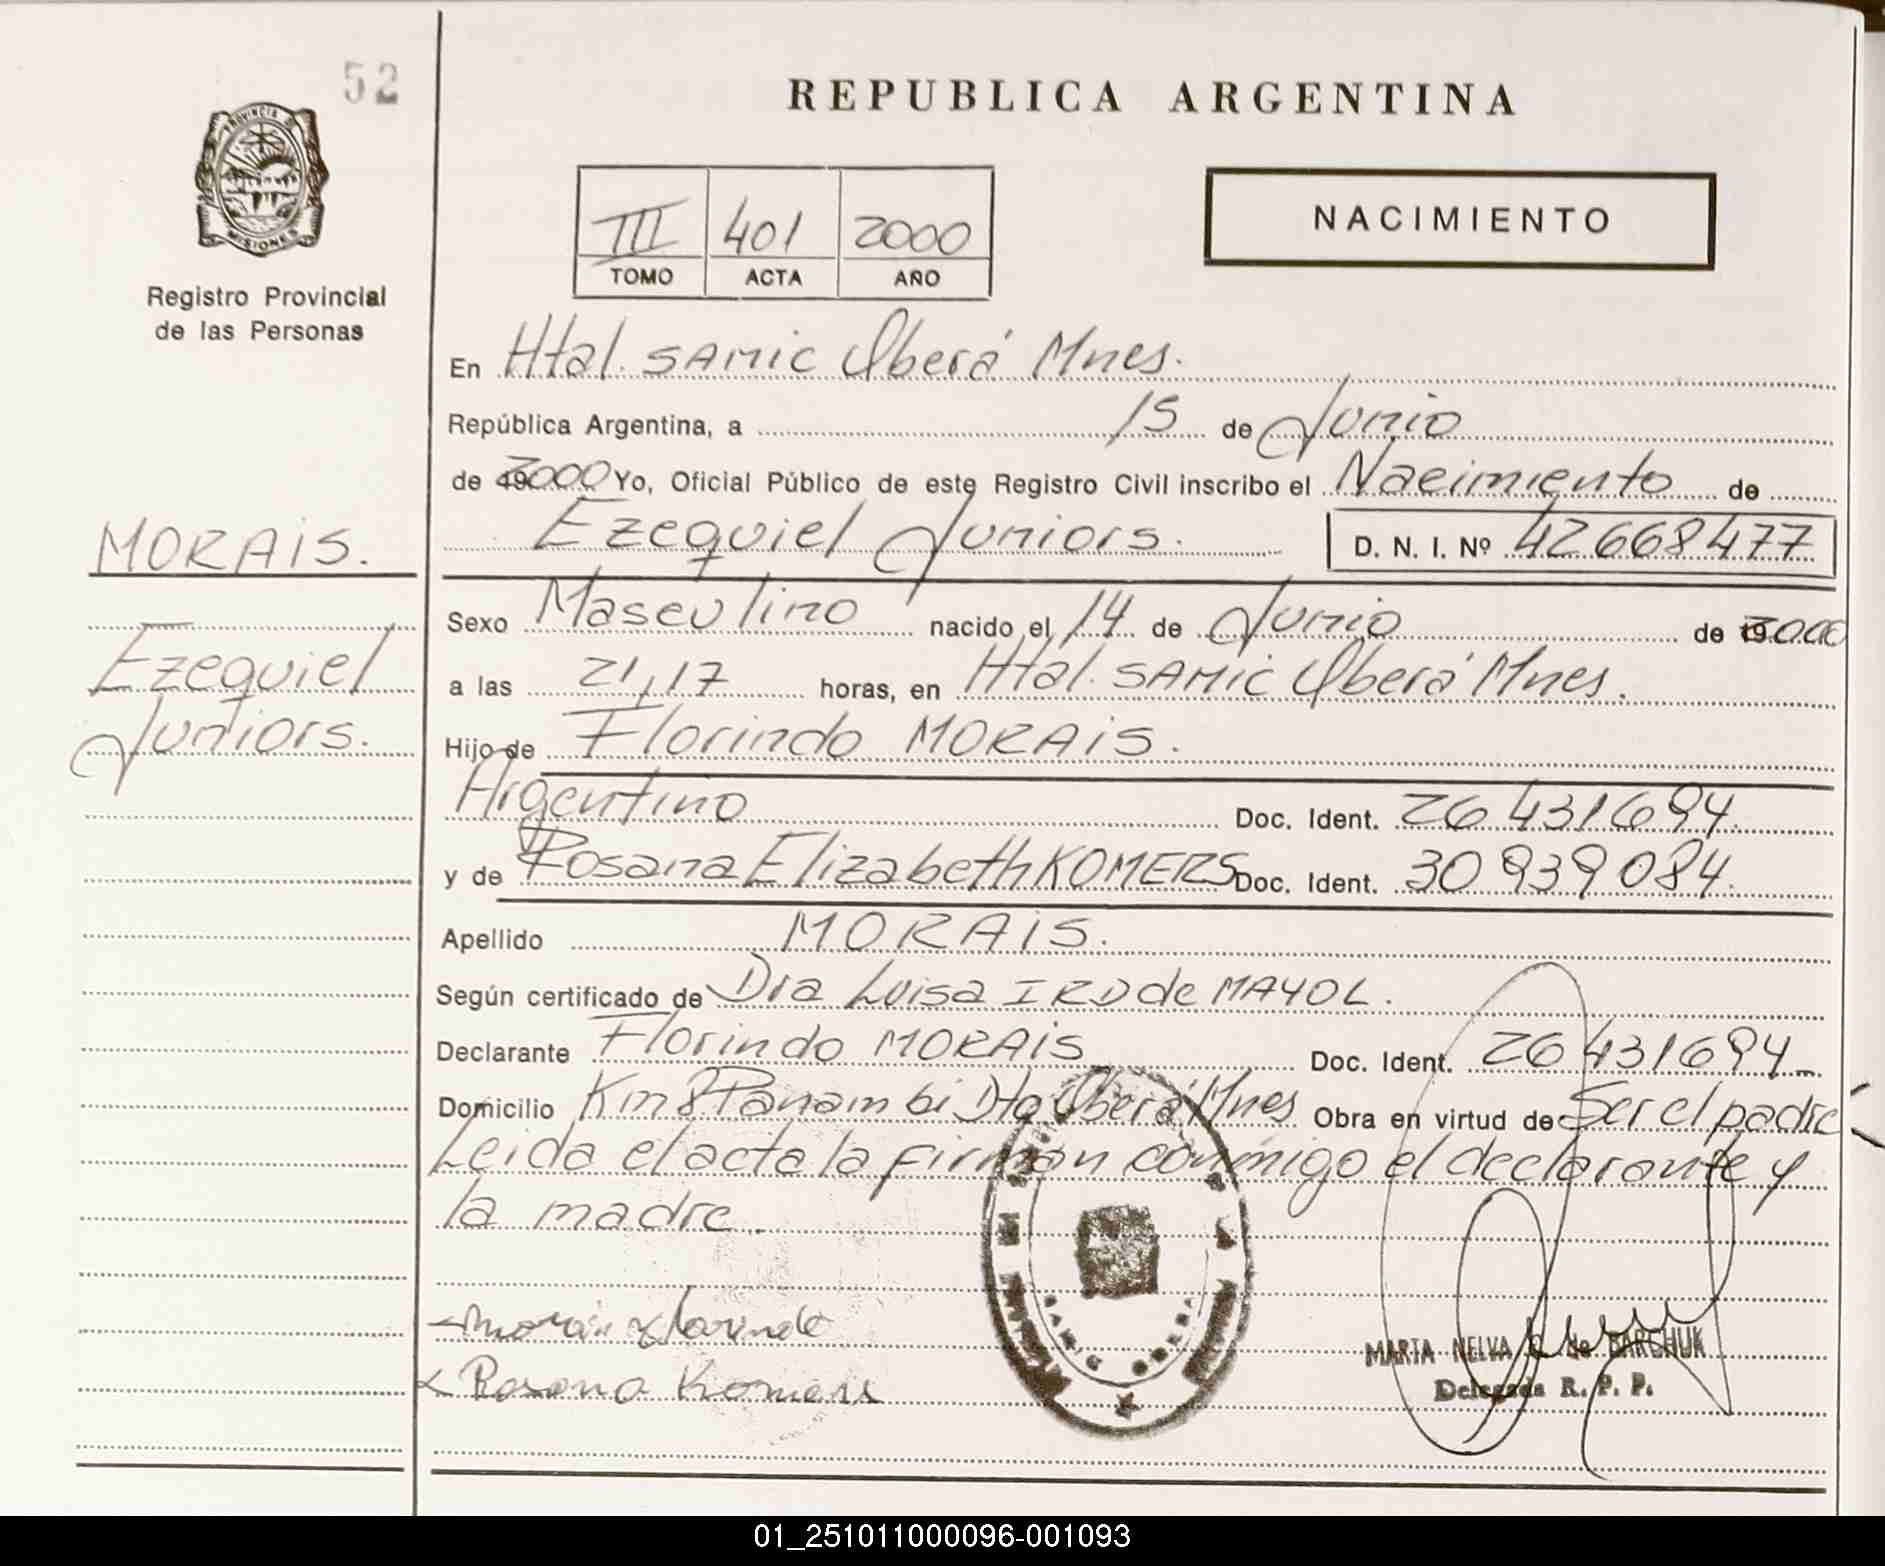 52
PROVINCIA DE
MISIONES
Registro Provincial
de las Personas
MORAIS.
Ezequiel
Juniors.
REPUBLICA ARGENTINA
III 401 2000
TOMO ACTA AÑO
NACIMIENTO
En Htal. SAMIC Oberá Mnes.
República Argentina, a 15 de Junio
de 2000 Yo, Oficial Público de este Registro Civil inscribo el Nacimiento de
Ezequiel Juniors. D. N. I. Nº 42668477
Sexo Masculino nacido el 14 de Junio de 2000
a las 21,17 horas, en Htal. SAMIC Oberá Mnes.
Hijo de Florindo MORAIS.
Argentino Doc. Ident. 26431694.
y de Rosana Elizabeth KOMERS Doc. Ident. 30939084.
Apellido MORAIS.
Según certificado de Dra Luisa IRD de MAYOL.
Declarante Florindo MORAIS Doc. Ident. 26431694
Domicilio Km 8 Panambi Dto Oberá Mnes Obra en virtud de Ser el padre
Leida el acta la firman conmigo el declarante y
la madre.
Morais Florindo
Rosana Komers
SAMIC OBERA
MARTA NELVA de BARCHUK
Delegada R. P. P.
01_251011000096-001093